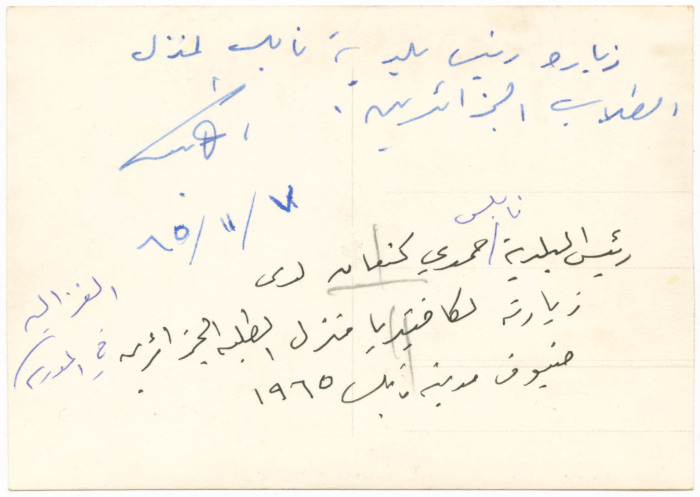 زيارة رئيس بلدية نابلس لمنزل
الطلاب الجزائريين.
٧/١١/٦٥
نابلس
رئيس البلدية / حمدي كنعان لدى
زيارته لكافتيريا منزل الطلبة الجزائريين
ضيوف مدينة نابلس ١٩٦٥
الغزالية
في المدرسة